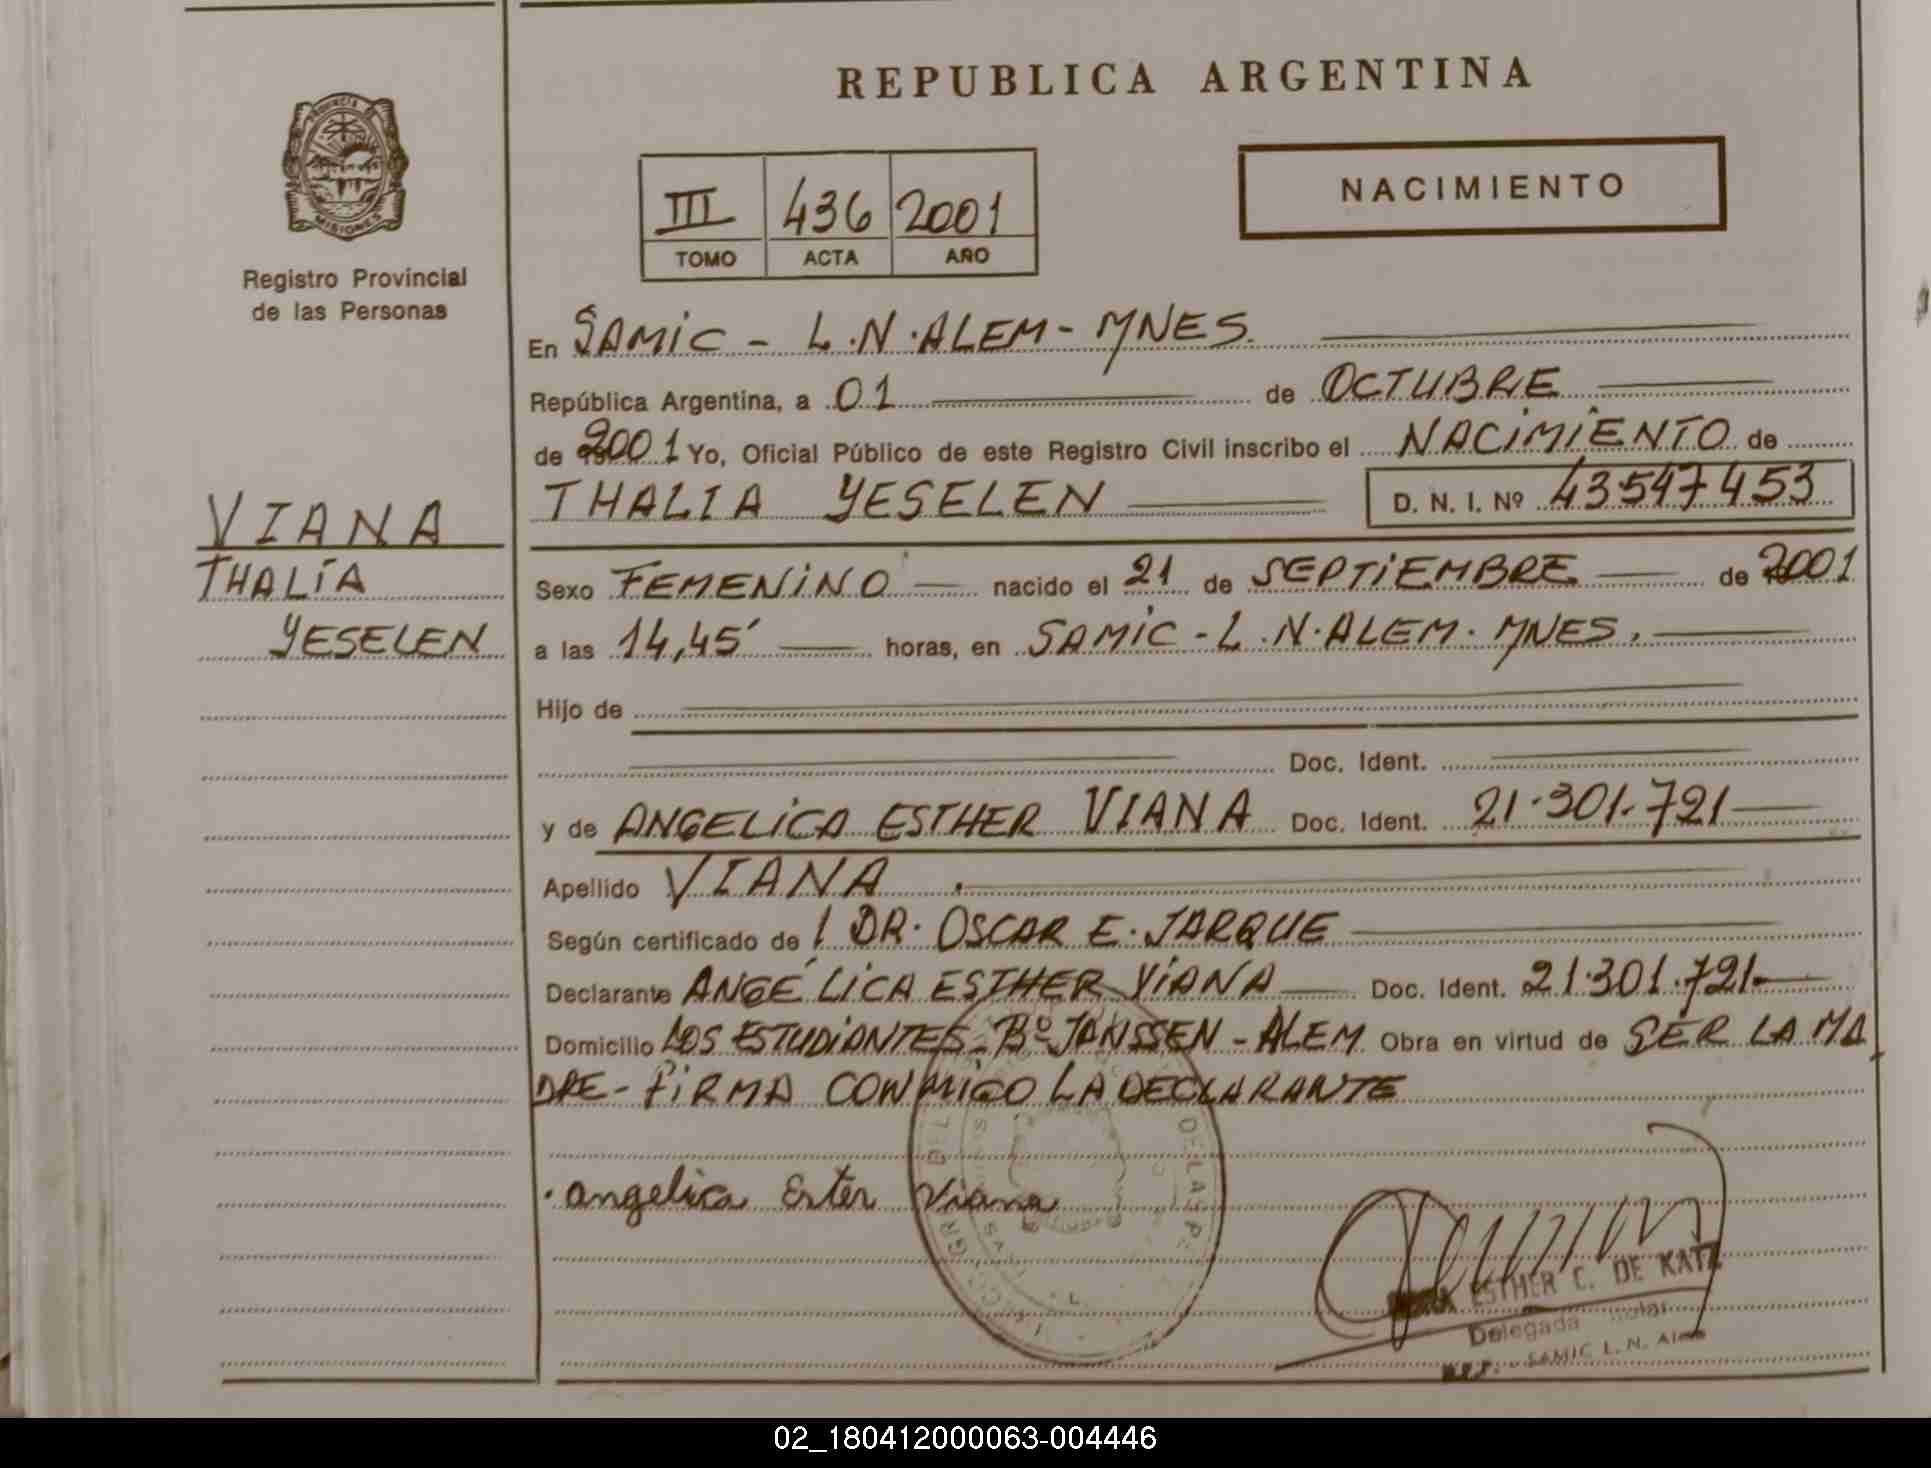 REPUBLICA ARGENTINA
PROVINCIA DE
MISIONES
Registro Provincial
de las Personas
III 436 2001
TOMO ACTA AÑO
NACIMIENTO
En SAMIC - L.N.ALEM - MNES.
República Argentina, a 01 de OCTUBRE
de 2001 Yo, Oficial Público de este Registro Civil inscribo el NACIMIENTO de
THALIA YESELEN D. N. I. Nº 43547453
VIANA
THALÍA
YESELEN
Sexo FEMENINO nacido el 21 de SEPTIEMBRE de 2001
a las 14,45' horas, en SAMIC - L.N.ALEM. MNES.
Hijo de
Doc. Ident.
y de ANGELICA ESTHER VIANA Doc. Ident. 21.301.721
Apellido VIANA.
Según certificado de l DR. OSCAR E. JARQUE
Declarante ANGÉLICA ESTHER VIANA Doc. Ident. 21.301.721
Domicilio LOS ESTUDIANTES - Bº JANSSEN - ALEM Obra en virtud de SER LA MA
DRE - FIRMA CONMIGO LA DECLARANTE
. angelica Ester Viana
DE LAS PE
ESTHER C. DE KATZ
Delegada
SAMIC L. N. Alem
02_180412000063-004446